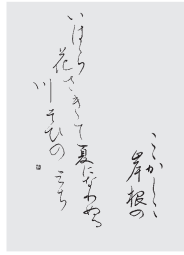 こゝかしこ
岸根の
いばら
花さきて夏になりぬる
川ぞひのみち